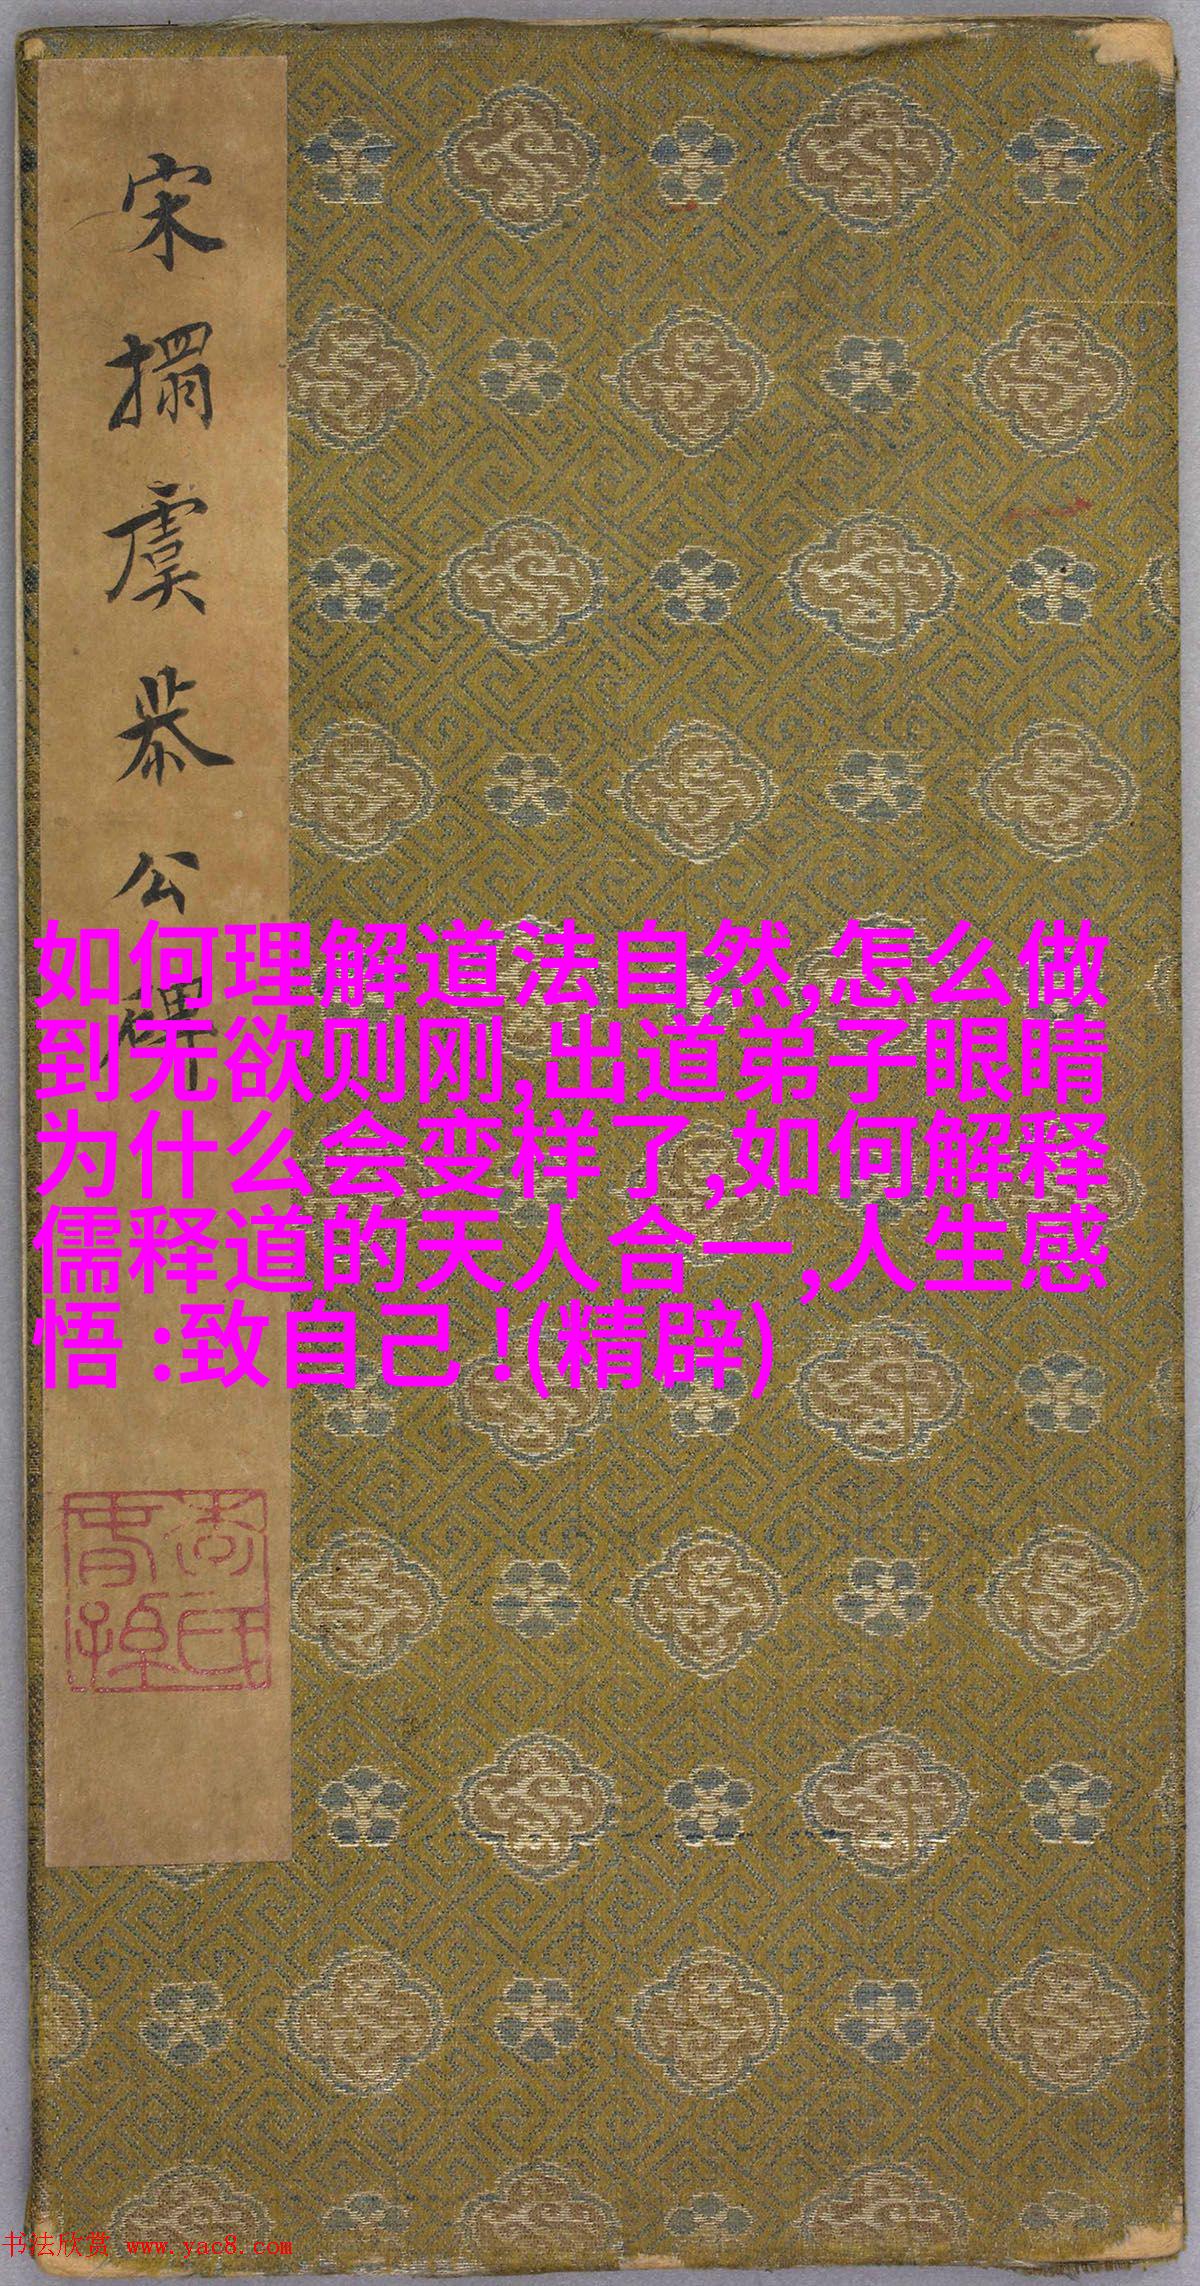 宋搨虞恭公碑
如何理解道法自然,怎么做
到无欲则刚,出道弟子眼睛
为什么会变样了,如何解释
儒释道的天人合一,人生感
悟 :致自己 !(精辟)
书法欣赏 www.yac8.com